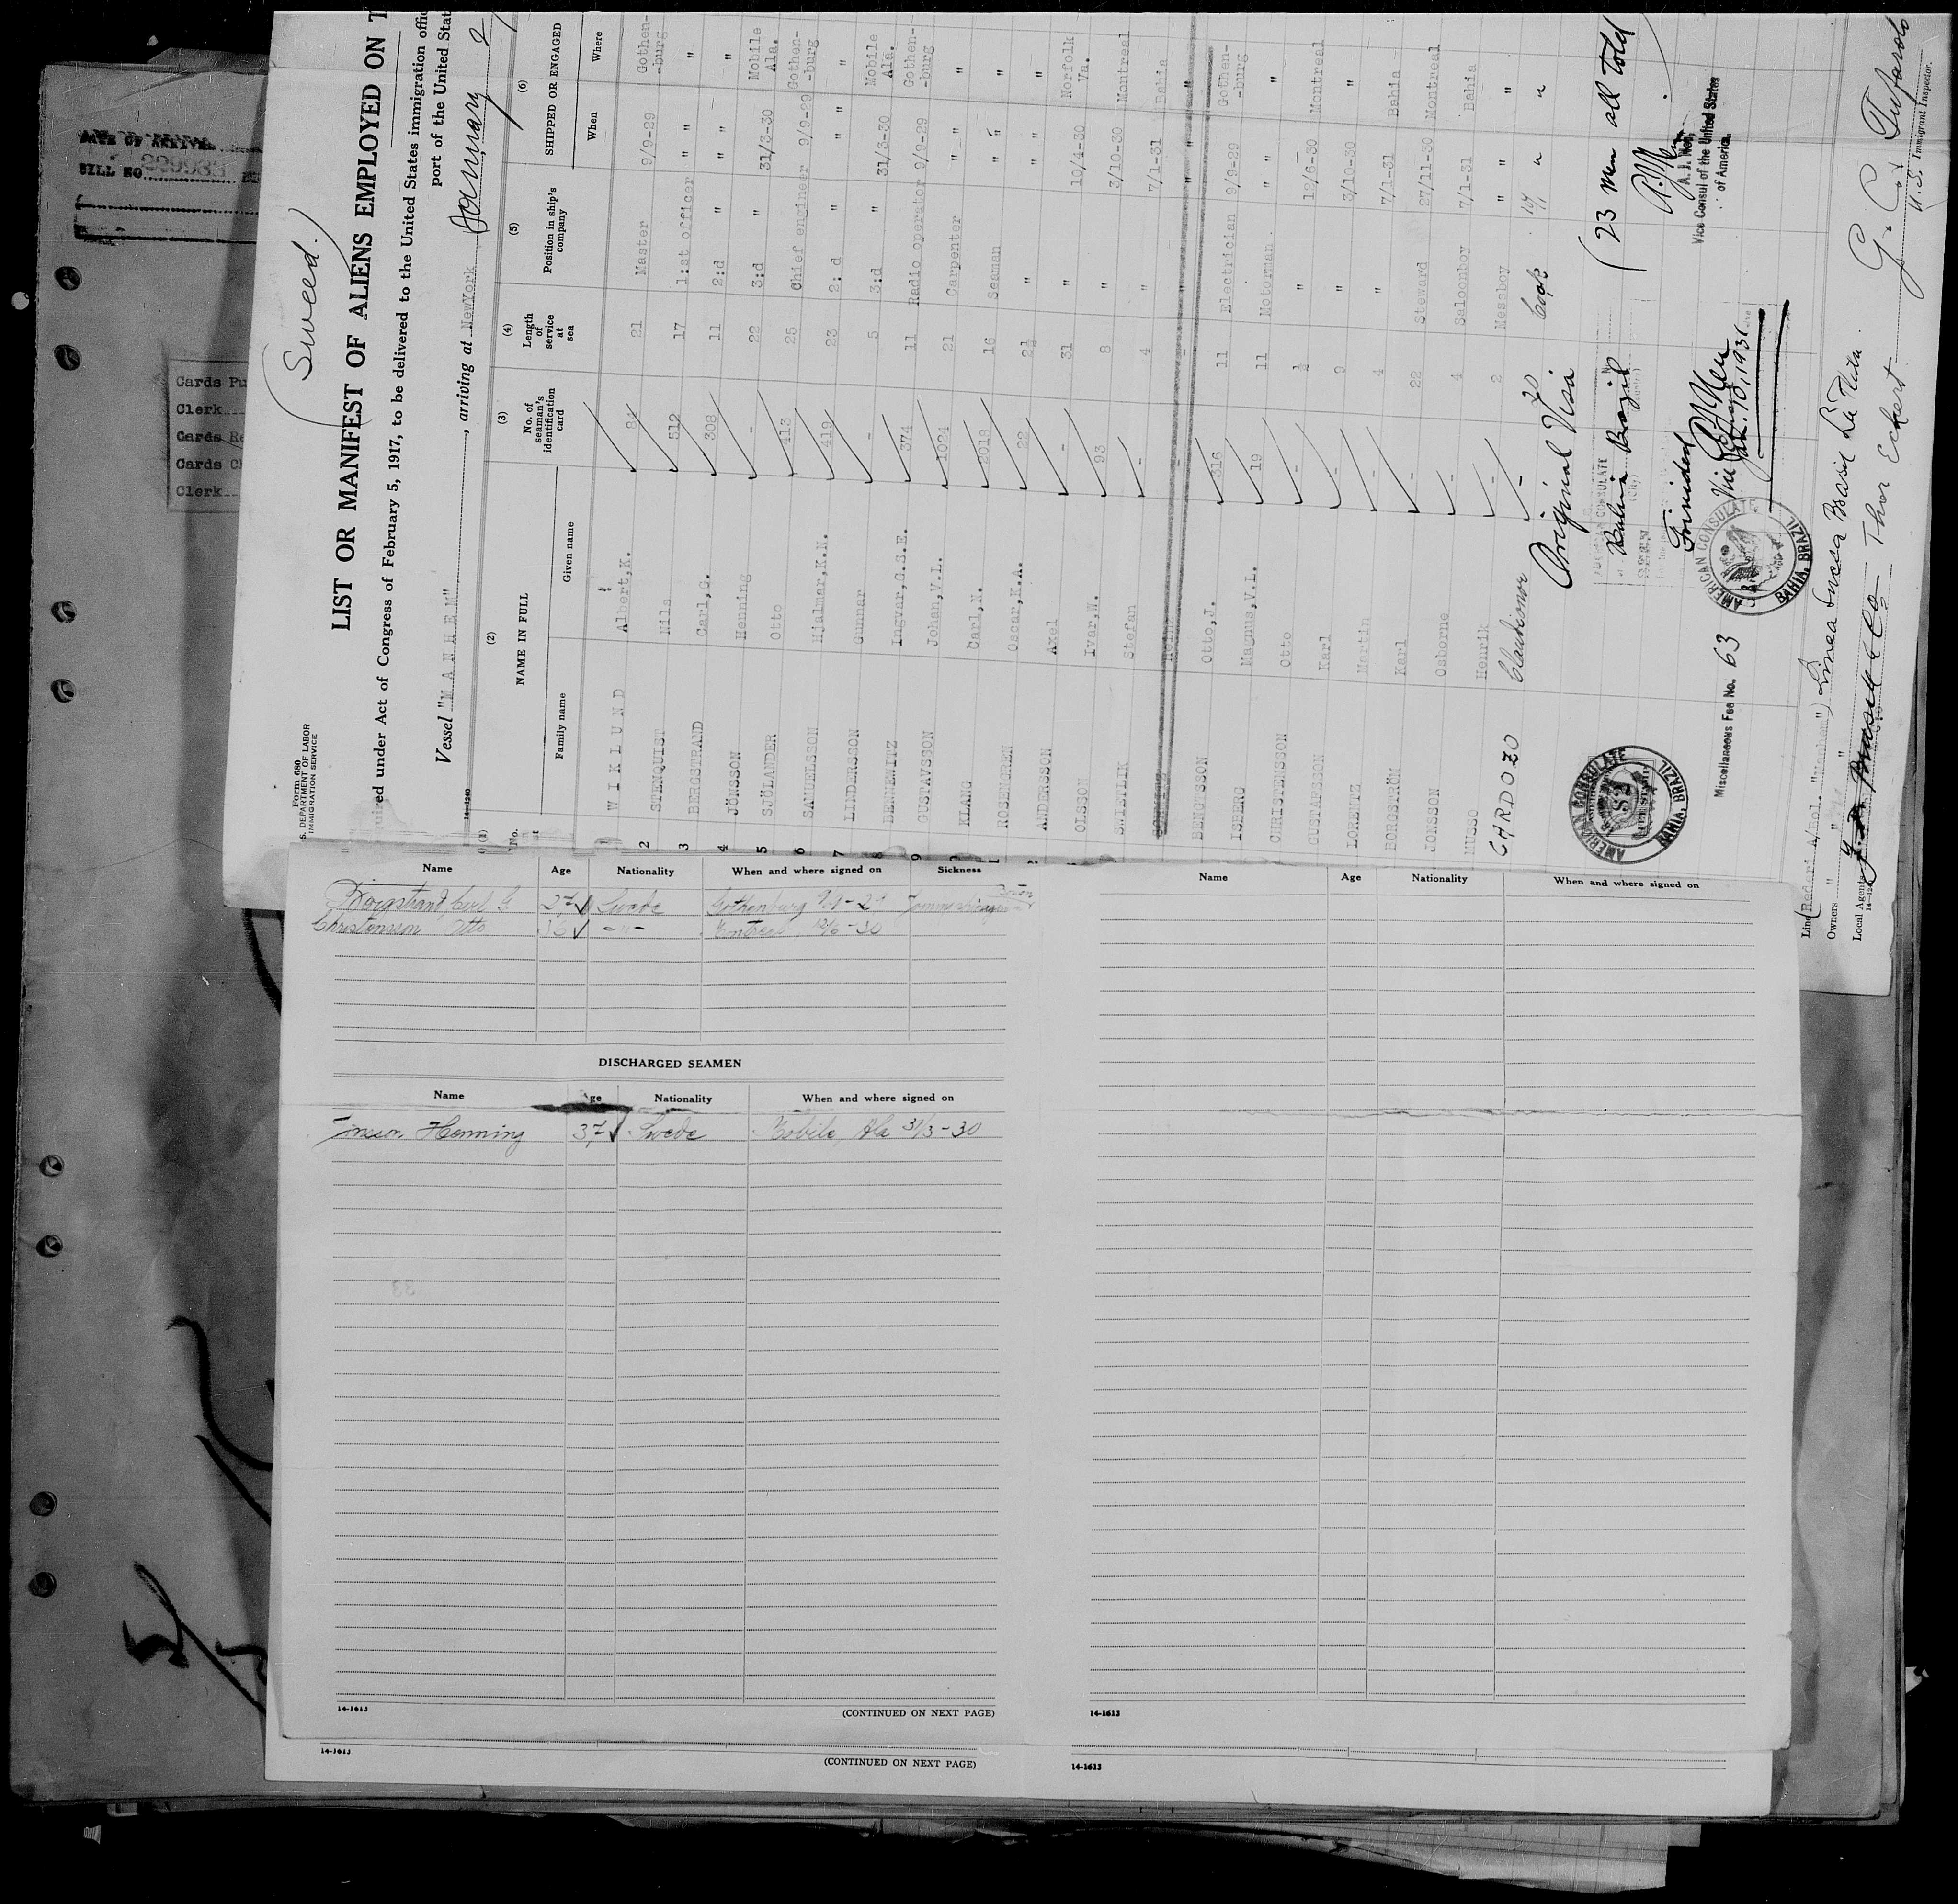 DATE OF ARRIVAL
BILL NO
Cards Pu
Clerk
Cards Re
Cards Ch
Clerk
(Sweed.)
Form 680
S. DEPARTMENT OF LABOR
IMMIGRATION SERVICE
LIST OR MANIFEST OF ALIENS EMPLOYED ON T
quired under Act of Congress of February 5, 1917, to be delivered to the United States immigration offic
port of the United Stat
Vessel "M A N H E M", arriving at NewYork January 2
14-1240
(1) (2) (3) (4) (5) (6)
No. NAME IN FULL No. of seaman's identification card Length of service at sea Position in ship's company SHIPPED OR ENGAGED
Family name Given name When Where
1 W I K L U N D Albert,K. 81 21 Master 9/9-29 Gothen-burg
2 STENQUIST Nils 512 17 1:st officer " " "
3 BERGSTRAND Carl,G. 308 11 2:d " " " "
4 JÖNSSON Henning - 22 3:d " 31/3-30 Mobile Ala.
5 SJÖLANDER Otto 413 25 Chief engineer 9/9-29 Gothen-burg
6 SAMUELSSON Hjalmar,K.N. 419 23 2:d " " " "
7 LINDERSSON Gunnar - 5 3:d " 31/3-30 Mobile Ala.
8 BENNEWITZ Ingvar,C.S.E. 374 11 Radio operator 9/9-29 Gothen-burg
9 GUSTAVSSON Johan,V.L. 1024 21 Carpenter " " "
KLANG Carl,N. 2018 16 Seaman " " "
ROSENGREN Oscar,K.A. 22 2½ " " " "
ANDERSSON Axel - 31 " 10/4-30 Norfolk Va.
OLSSON Ivar,W. 93 8 " 3/10-30 Montreal
SMIETLIK Stefan - 4 " 7/1-31 Bahia
BENGTSSON Otto,J. 316 11 Electrician 9/9-29 Gothen-burg
ISBERG Magnus,V.I. 19 11 Motorman " " "
CHRISTENSSON Otto - ½ " 12/6-30 Montreal
GUSTAFSSON Karl - 9 " 3/10-30 "
LORETZ Martin - 4 " 7/1-31 Bahia
BORGSTRÖM Karl - 22 Steward 27/11-30 Montreal
JONSSON Osborne - 4 Saloonboy 7/1-31 Bahia
MUSSO Henrik - 2 Messboy " " "
CHRDOZO Claudionor - 20 Cook
Original Visa
Bahia Brazil
(23 men all told)
A. J. Ney,
Vice Consul of the United States
of America.
SEEN
AMERICAN CONSULATE
Trinidad
Jan. 10, 1931
AMERICAN CONSULATE
BAHIA, BRAZIL
AMERICAN CONSULATE
$2
BAHIA, BRAZIL
Miscellaneous Fee No. 63
Line (Rederi A/Bol. "Manhem") Linea Sueca Brasil La Plata.
Owners " " "
Local Agents Thor Eckert
14-1240
U.S. Immigrant Inspector.
Name Age Nationality When and where signed on Sickness
Bergstrand, Carl G. 27 Swede Gothenburg 9/9-29
Christensson Otto Swede 12/6-30
DISCHARGED SEAMEN
Name Age Nationality When and where signed on
Jönsson Henning 37 Swede Mobile Ala 31/3-30
14-1613 (CONTINUED ON NEXT PAGE)
14-1613 (CONTINUED ON NEXT PAGE)
Name Age Nationality When and where signed on
14-1613
14-1613